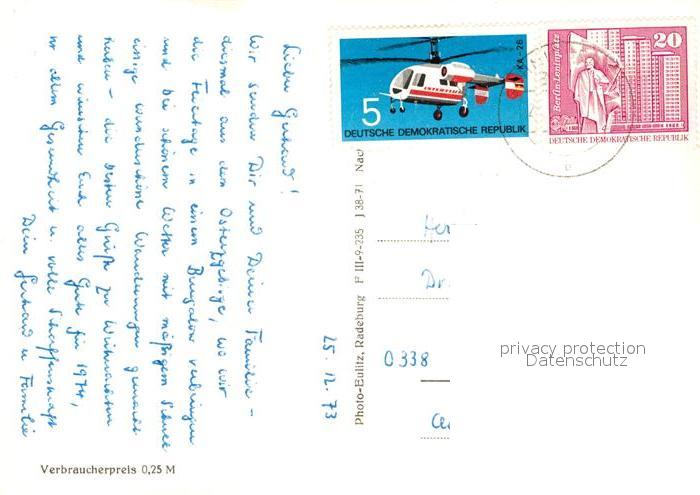 Lieber Gerhard!
Wir senden Dir und Deiner Familie –
diesmal aus dem Osterzgebirge, wo wir
die Feiertage in einem Bungalow verbringen
und bei schönem Wetter mit mäßigem Schnee
einige wunderschöne Wanderungen gemacht
haben – die besten Grüße zu Weihnachten
und wünschen Euch alles Gute für 1974,
vor allem Gesundheit u. volle Schaffenskraft
Dein Gerhard u. Familie
25. 12. 73
Photo-Eulitz, Radeburg F III-9-235 J 38-71 Nac
5
KA-26
INTERFLUG
DEUTSCHE DEMOKRATISCHE REPUBLIK
20
Berlin-Leninplatz
DEUTSCHE DEMOKRATISCHE REPUBLIK
Her
Dr.
0338
privacy protection
Datenschutz
Verbraucherpreis 0,25 M